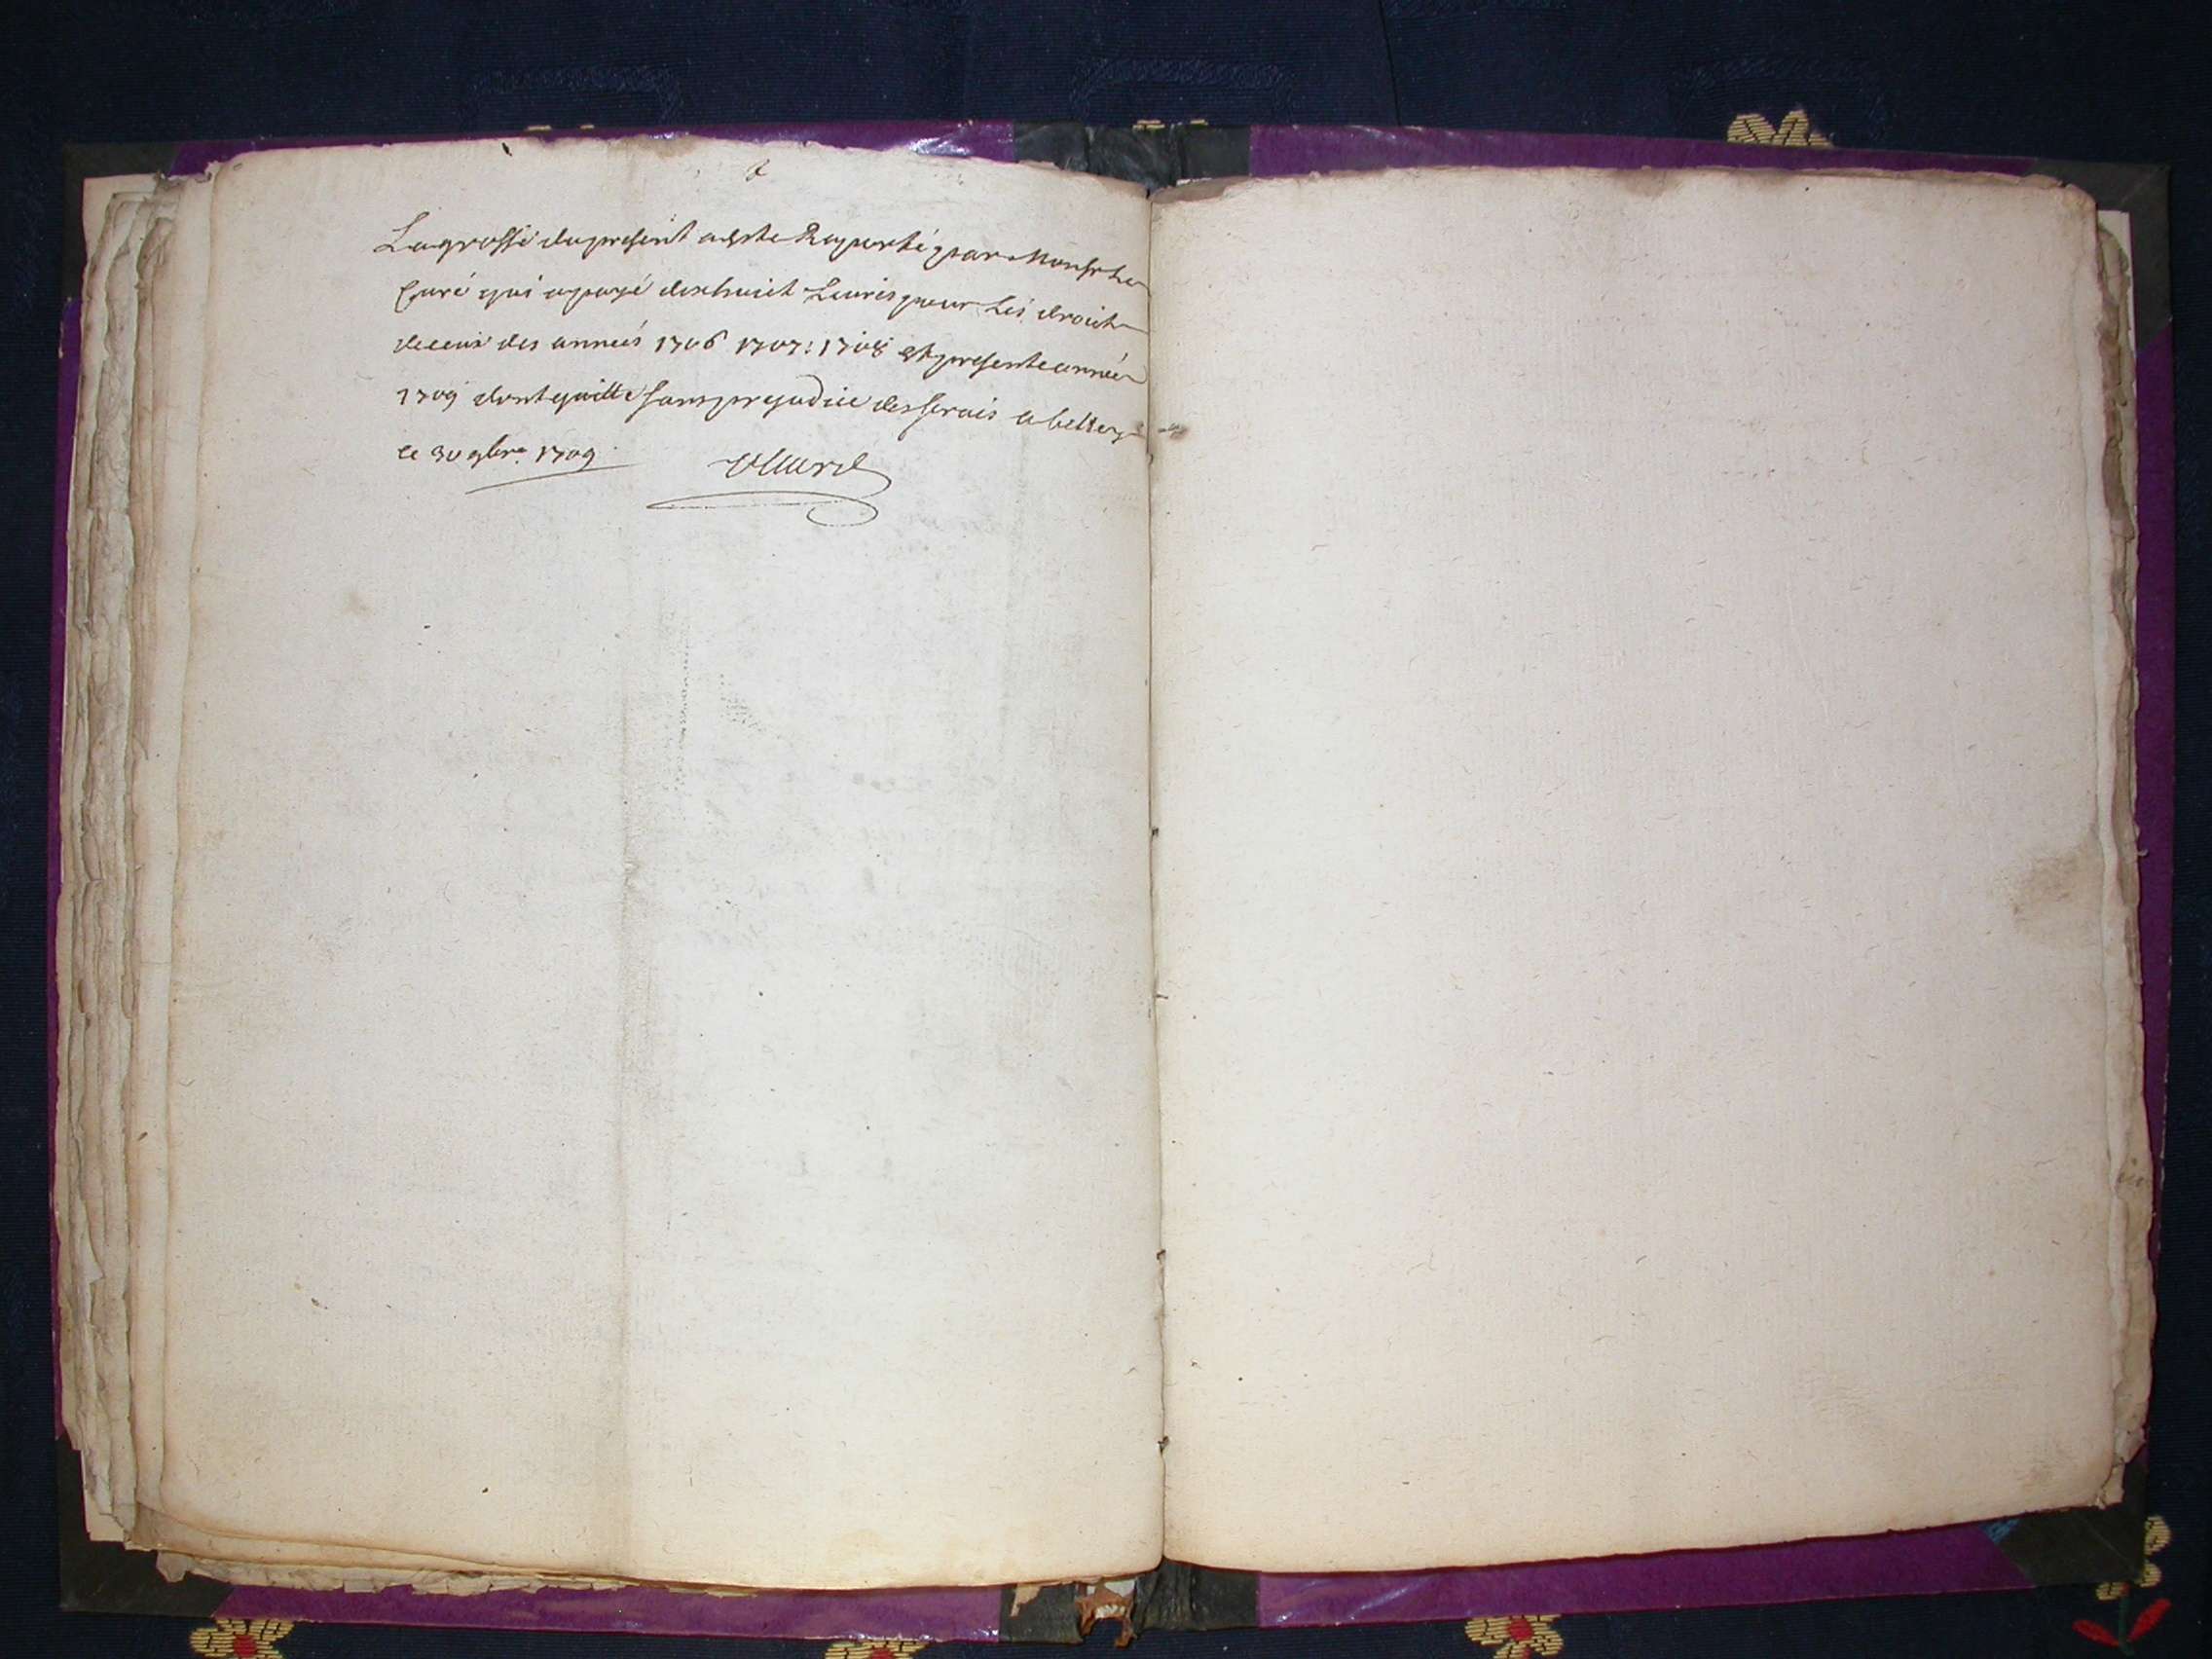 La grosse du present acste Raporté par Monsr Le
Curé qui a payé dixhuict Livres pour Les droict
de ceux des années 1706 1707: 1708 et presente année
1709 dont quitte sans prejudice des frais a belley
ce 30 9bre 1709